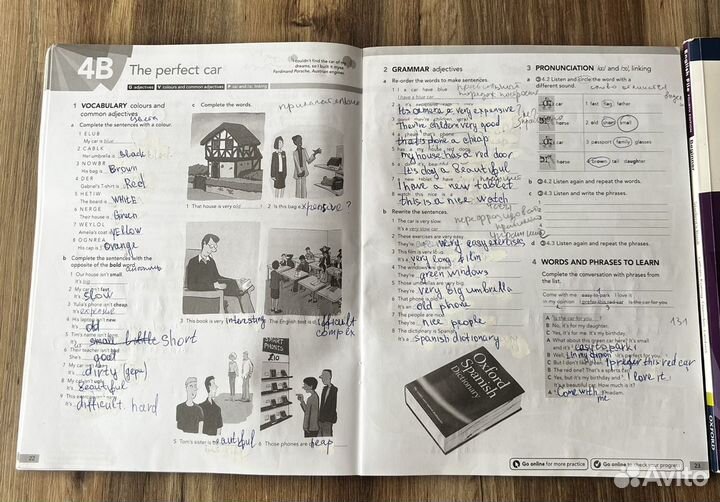 4B The perfect car
I couldn't find the car of my
dreams, so I built it myself.
Ferdinand Porsche, Austrian engineer
G adjectives V colours and common adjectives P /ɑː/ and /ɔː/, linking
1 VOCABULARY colours and
common adjectives
цвета
a Complete the sentences with a colour.
1 ELUB
My car is blue
2 CABLK
Her umbrella is black
3 NOWBR
His bag is Brown
4 DER
Gabriel's T-shirt is Red
5 HETIW
The beard is WHITE
6 NERGE
Their house is Green
7 WEYLOL
Amelia's coat is yellow
8 OGNREA
His cap is orange
b Complete the sentences with the
opposite of the bold word.
антоним
1 Our house isn't small.
It's big
2 My car isn't fast.
It's slow
3 Yulia's phone isn't cheap.
4 His laptop isn't new.
It's old
5 Tim's name isn't long.
It's small little short
6 Their teacher isn't bad.
She's good
7 My car isn't clean.
It's dirty
8 My cat isn't ugly.
It's beautiful
9 This exercise isn't easy.
It's difficult. hard
c Complete the words.
прилагательное
1 That house is very old.
2 Is this bag expensive?
3 This book is very interesting
4 The English test is difficult
complex
SMART
PHONES
£10
5 Tom's sister is beautiful
6 Those phones are cheap
22
2 GRAMMAR adjectives
a Re-order the words to make sentences.
правильный
порядок
1 I a car have blue
I have a blue car.
Its camera a very expensive?
They're children very good
that's phone a cheap
my house has a red door
It's day a beautiful
I have a new tablet
this is a nice watch
b Rewrite the sentences.
1 The car is very slow.
It's a very slow car.
2 These exercises are very easy.
They're very easy exercises
3 This film is very long.
It's a very long film
4 The windows are green.
They're green windows
5 Those umbrellas are very big.
They're very big umbrella
6 That phone is old.
It's an old phone
7 The people are nice.
They're nice people
8 The dictionary is Spanish.
It's a spanish dictionary
Oxford
Spanish
Dictionary
3 PRONUNCIATION /ɑː/ and /ɔː/, linking
a 4.2 Listen and circle the word with a
different sound.
car 1 fast flag father
horse 2 old short small
car 3 passport family glasses
horse 4 brown tall daughter
b 4.2 Listen again and repeat the words.
c 4.3 Listen and write the phrases.
d 4.3 Listen again and repeat the phrases.
4 WORDS AND PHRASES TO LEARN
Complete the conversation with phrases from
the list.
Come with me easy to park I love it
in my opinion I prefer this red car Is the car for you
A Is the car for you?
B No, it's for my daughter.
C Yes, it's for me. It's my birthday.
A What about this green car here? It's small
and it's easy to park.
B Well, in my opinion it's perfect for you.
C But I don't like green. I prefer this red car
B The red one? That's a sports car.
C Yes, but it's my birthday and I love it
It's a beautiful car. How much is it?
A Come with me, madam.
131
Go online for more practice
Go online to check your progress
23
OXFORD
Avito